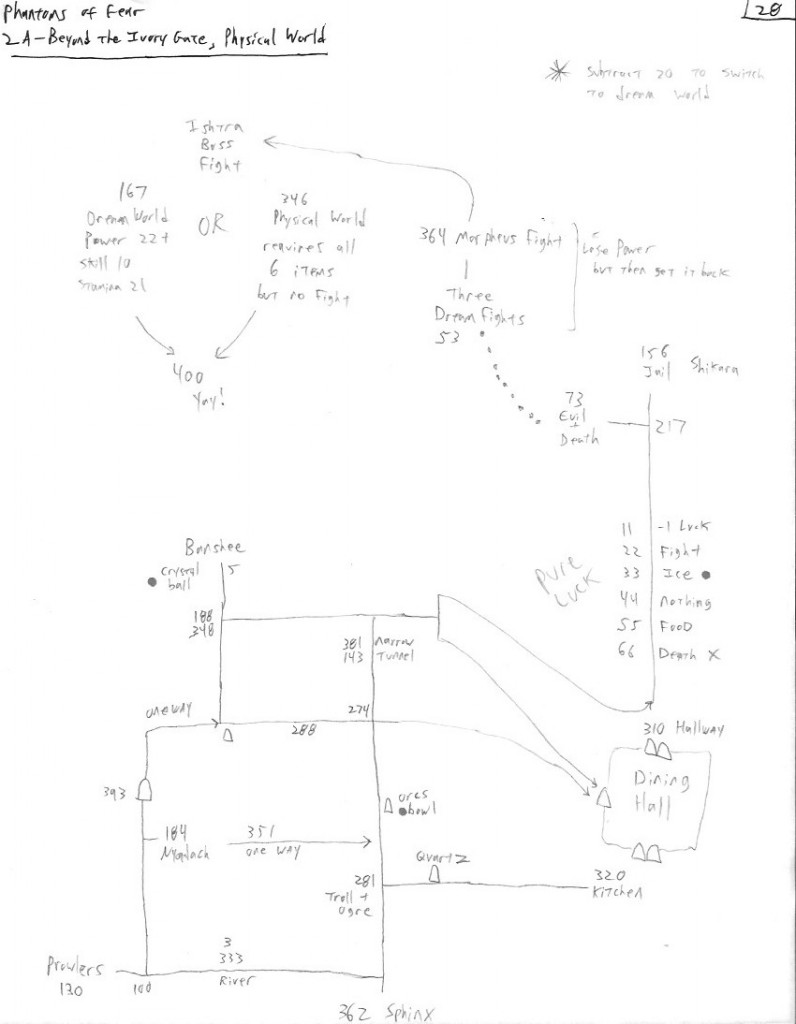 Phantoms of Fear
28
2A-Beyond the Ivory Gate, Physical World
* Subtract 20 to switch
to dream world
Ishtra
Boss
Fight
167
Dream World
Power 22+
Skill 10
Stamina 21
OR
346
Physical World
requires all
6 items
but no fight
400
Yay!
364 Morpheus Fight
Lose Power
but then get it back
Three
Dream Fights
53
156
Jail
Shikara
73
Evil
+
Death
217
Pure
Luck
11 -1 Luck
22 Fight
33 Ice
44 Nothing
55 Food
66 Death X
Banshee
5
crystal
ball
188
348
381
143
narrow
Tunnel
one way
274
288
310 Hallway
Dining
Hall
393
orcs
bowl
184
351
one way
Quartz
281
Troll +
Ogre
320
Kitchen
Prowlers
130
100
3
333
River
362 Sphinx